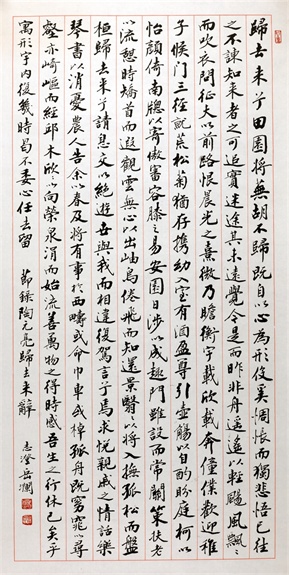 歸去来兮田園将蕪胡不歸既自以心為形役奚惆悵而獨悲悟已往
之不諫知来者之可追實迷途其未遠覺今是而昨非舟遥々以輕颺風飄々
而吹衣問征夫以前路恨晨光之熹微乃瞻衡宇載欣載奔僮僕歡迎稚
子候门三徑就荒松菊猶存携幼入室有酒盈尊引壺觴以自酌眄庭柯以
怡顏倚南牕以寄傲審容膝之易安園日涉以成趣門雖設而常關策扶老
以流憩時矯首而遐觀雲無心以出岫鳥倦飛而知還景翳々以将入撫孤松而盤
桓歸去来兮請息交以絶遊世與我而相違復駕言兮焉求悦親戚之情話樂
琴書以消憂農人告余以春及将有事於西疇或命巾車或棹孤舟既窈窕以尋
壑亦崎嶇而經邱木欣々以向榮泉涓々而始流善萬物之得時感吾生之行休已矣乎
寓形宇内復幾時曷不委心任去留
節録陶元亮歸去来辭
志澄